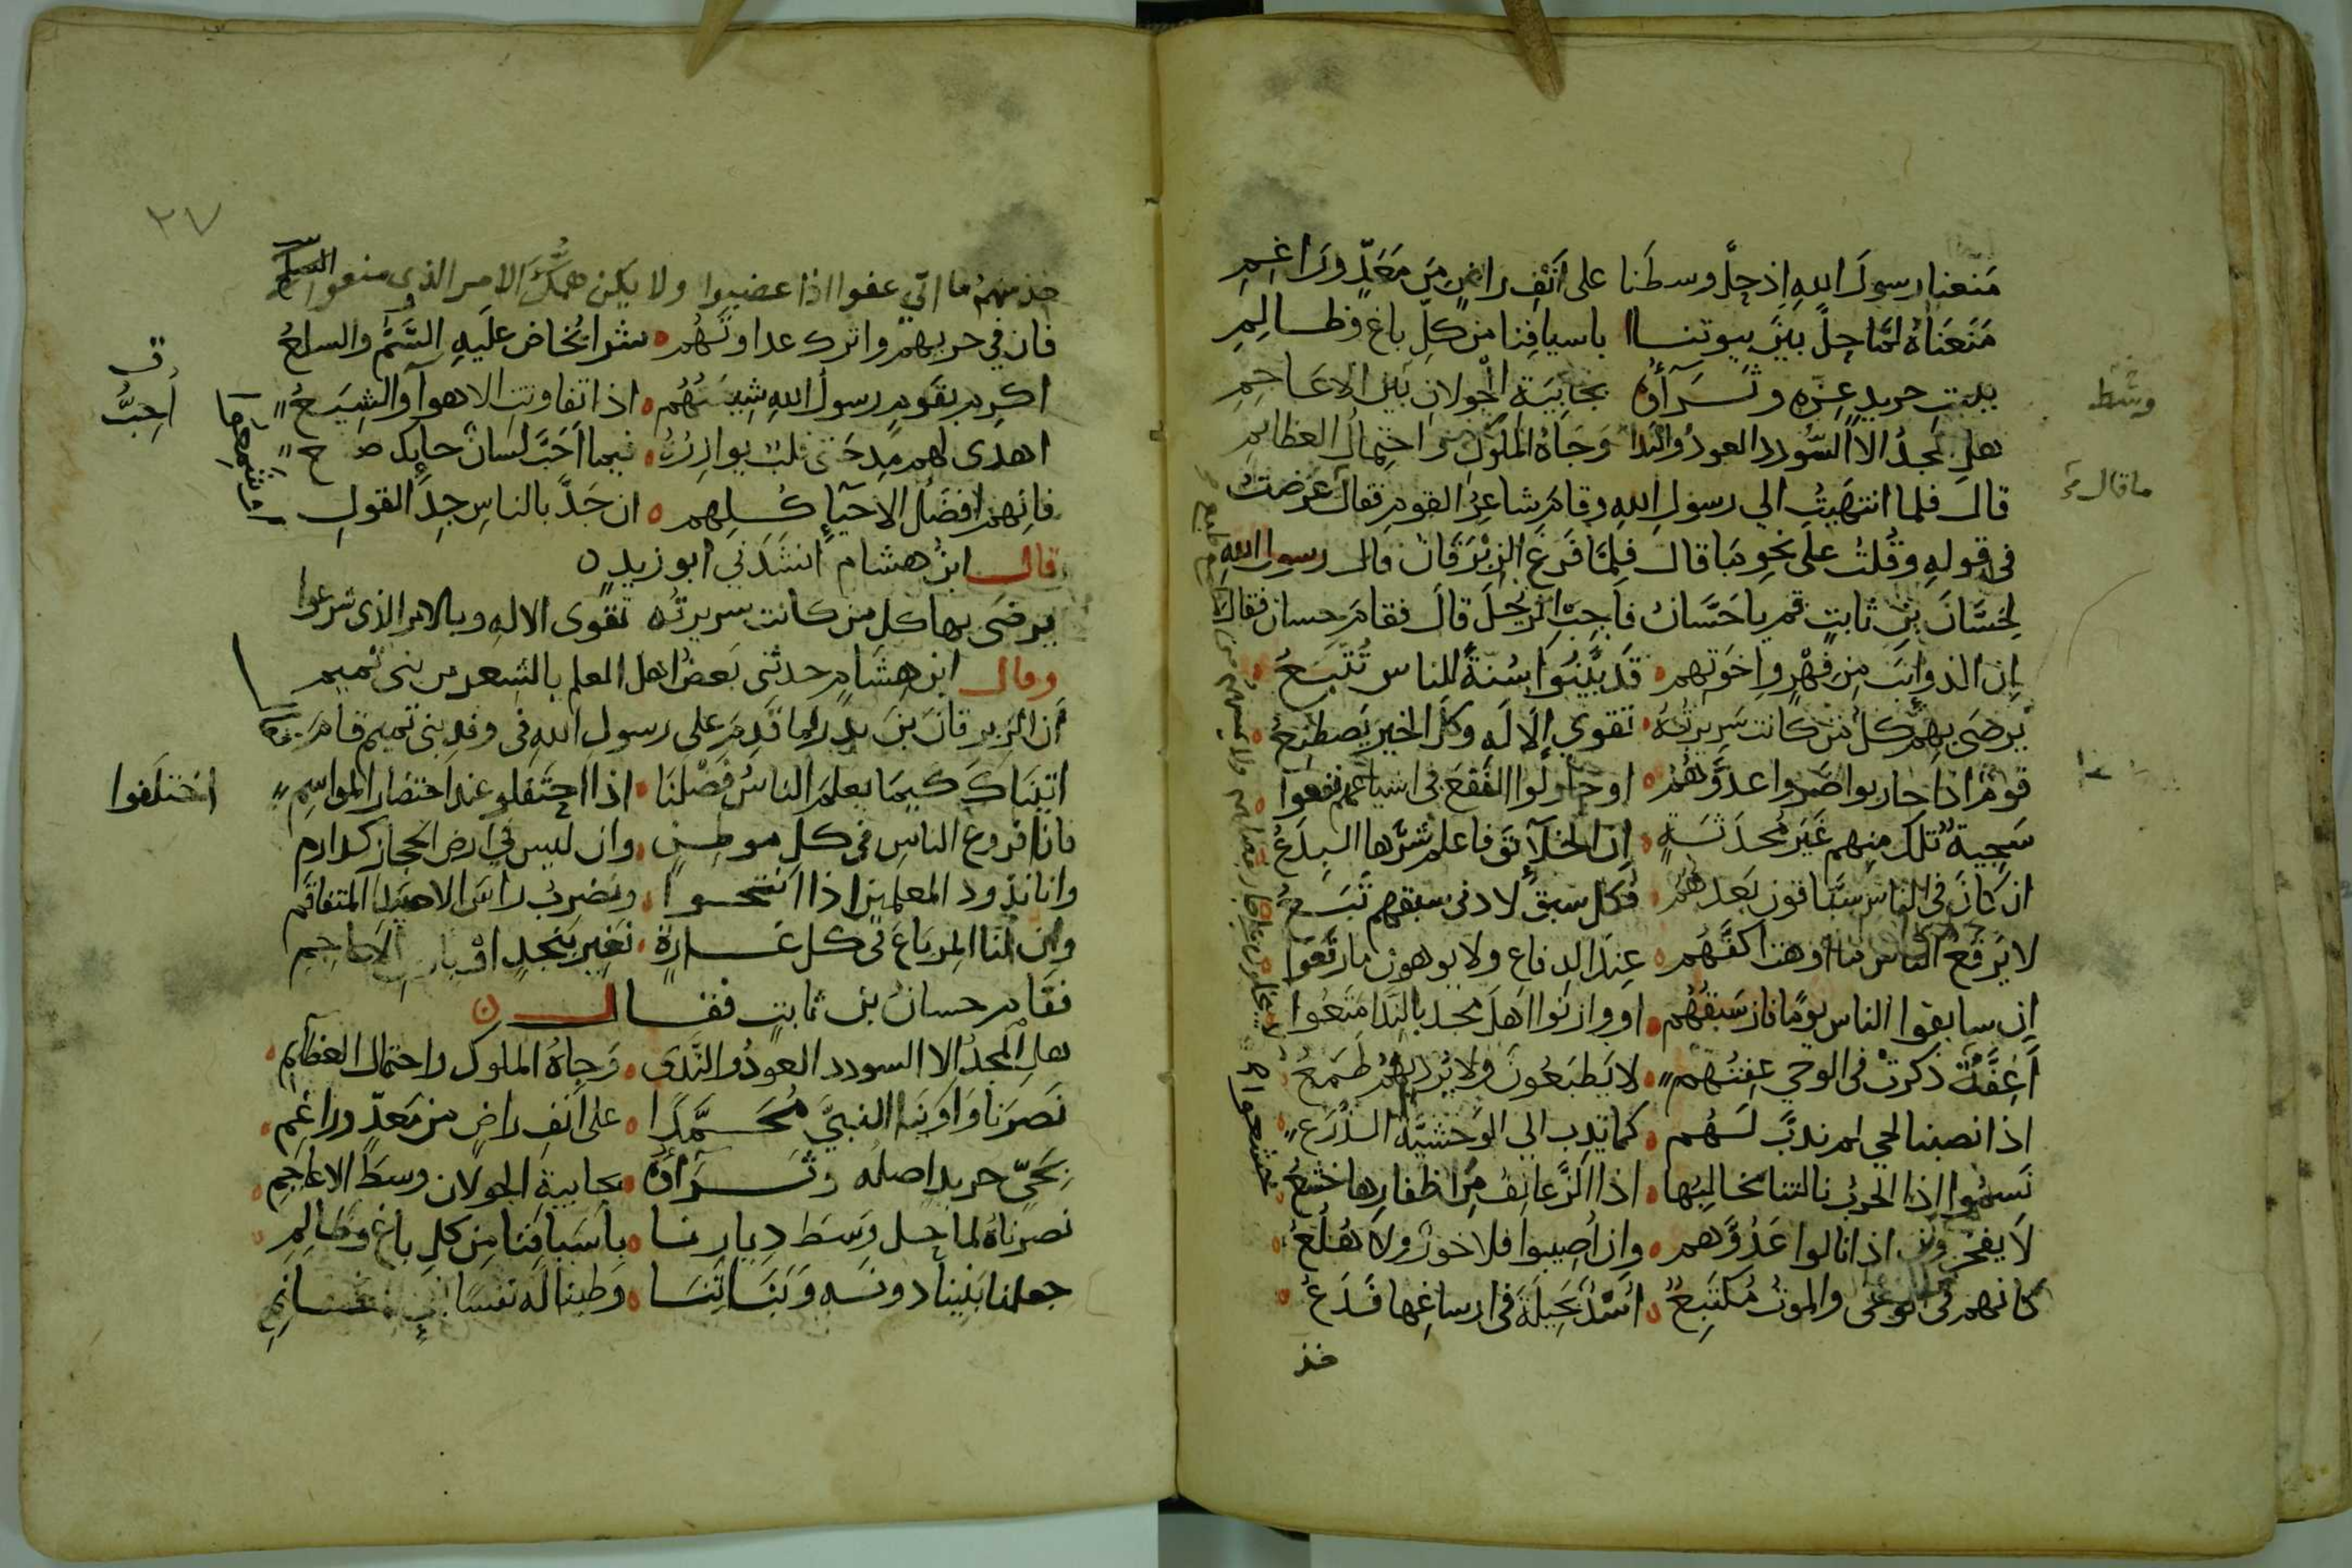 مَنَعنا رسولَ اللهِ إذ حلَّ وسطَنا على أنْفِ راضٍ مِن مَعَدٍّ وراغِمِ
مَنَعناهُ لمَّا حلَّ بَيْنَ بيوتنا باسيافِنا من كلِّ باغٍ وظالِمِ
ببيت حريدٍ عِزّه وثَرَآؤه بجابِيَةِ الجَولانِ بَين الاعَاجِمِ
وسْط
هلِ المجدُ الا السُّودد العودُ والندا وَجَاهُ الملوكِ واحتِمالُ العظائمِ
قال فلما انتهَيتُ الي رسولِ اللهِ وقامَ شاعِرُ القومِ فقال عَرَضتُ
ما قال
في قولِهِ وقُلتُ على نحوِ مَا قالَ فلمَّا فَرَغَ الزِبْرَقَانُ قال رسول اللهِ
لِحَسَّانَ بنِ ثابتٍ قم يا حَسَّانُ فاَجِبِ الرَّجلَ قالَ فقامَ حسان فقال
إن الذوائبَ مِن فِهْرٍ واِخوَتهم قَد بيَّنُوا سُنةً للناسِ تُتَّبَعُ
يَرضَى بهِم كلُّ مَن كانت سَرِيرَتُهُ تقوي الإلَهِ وكلَّ الخيرِ يَصطَنِعُ
قومٌ اذا حاربوا ضَرّوا عدوَّهُمُ او حاولُوا النَّفعَ في اشياعِهِم نفعوا
سَجِيةٌ تلكَ منهم غَيرُ مُحدَثَةٍ إن الخلآئقَ فاعلم شرّها البِدَعُ
ان كانَ في الناسِ سبَّاقونَ بَعدهمُ فكل سبقٍ لادنى سبقهم تَبَعُ
لا يَرفَعُ الناس ما اَوهت اكفّهُم عِندَ الدفاعِ ولا يوهون ما رَقَعوا
إن سابقوا الناس يومًا فاز سَبقُهُم او وازنُوا اهلَ مجدٍ بالنَّدا مَتَعُوا
اَعِفَّةٌ ذُكرتْ في الوحي عِفتُهم لا يَطبَعُونَ ولا يُرديهمُ طَمَعُ
اذا نصبنا لحي لم ندبَّ لَهُم كما يَدِب الي الوَحشيَّةِ الذَّرَعُ
نَسموا إذا الحربُ نالتنا مخالِبُها اذا الزَّعانِفُ مِن اظفارِها خشعُ
لا يفخرون اذا نالوا عَدُوَّهم وإن اُصِيبوا فلا خورٌ ولا هُلُعُ
كانهم في الوغى والموتُ مُكتَنِعٌ اُسْدٌ بَحِليَةَ في ارساغِها فَدَعُ
خذ
٢٧
خذ منهمُ ما اتى عفوا اذا غضبوا ولا يكن همّكَ الامر الذي منعوا
فان في حربهم واترك عداوتَهُم شرا يُخاض علَيهِ السَّمُّ والسلعُ
اكرِم بقَومٍ رسولُ اللهِ شِيعَتُهُم اذا تفاوتتِ الاهوآ والشِيَعُ
اهدى لهم مِدحَتي قلبٌ يوازِرُهُ فيما اَحَبَّ لسانٌ حايِك صَ
أُحِبُّ
فانهم افضَلُ الاحيآءِ كُلِهم ان جَدَّ بالناسِ جِدُّ القولِ
او شمعوا
قال ابنُ هشام انشَدَني ابو زيد
يرضى بها كل من كانت سريرتُه تقوى الالهِ وبالامر الذي شرعوا
وقال ابن هِشَام حدثني بَعضُ اهل العلم بالشعر من بني تميم
اَن الزِبرقانَ بنَ بدرٍ لما قَدِمَ على رسول اللهِ في وفدِ بني تميم قامَ فقال
اتينَاكَ كيمَا يعلمَ الناسُ فَضْلَنَا اذا احتَفلو عند احتضار المواسِمِ
اختلَفوا
بانا فروع الناسِ في كلِ موطِنٍ وان ليس في ارض الحجاز كدارم
وانا نذود المعلمين اذا انتخوا ونضرِبُ راسَ الاصيَدِ المتفاقم
وإن لنا المرباعَ في كل غارةٍ نغير بنجدٍ او بارض الاعاجِمِ
فقام حسانُ بن ثابتٍ فقال
هلِ المجدُ الا السودد العودُ والنَّدى وَجاهُ الملوك واحتمال العظآئم
نَصَرنا وآوَينا النبيَّ مُحَمَّدًا على اَنفِ راضٍ من مَعدٍّ وراغِم
بحَيٍّ حريدٍ اصلُه وثَرَآؤُه بجابيةِ الجولان وسطَ الاعاجِمِ
نصرناهُ لما حل وَسَط دِيارِنا باَسيافِنا مِن كلِ باغٍ وظالِمِ
جعلنا بنينا دونه وَبَنَاتِنَا وطبنا له نفسًا